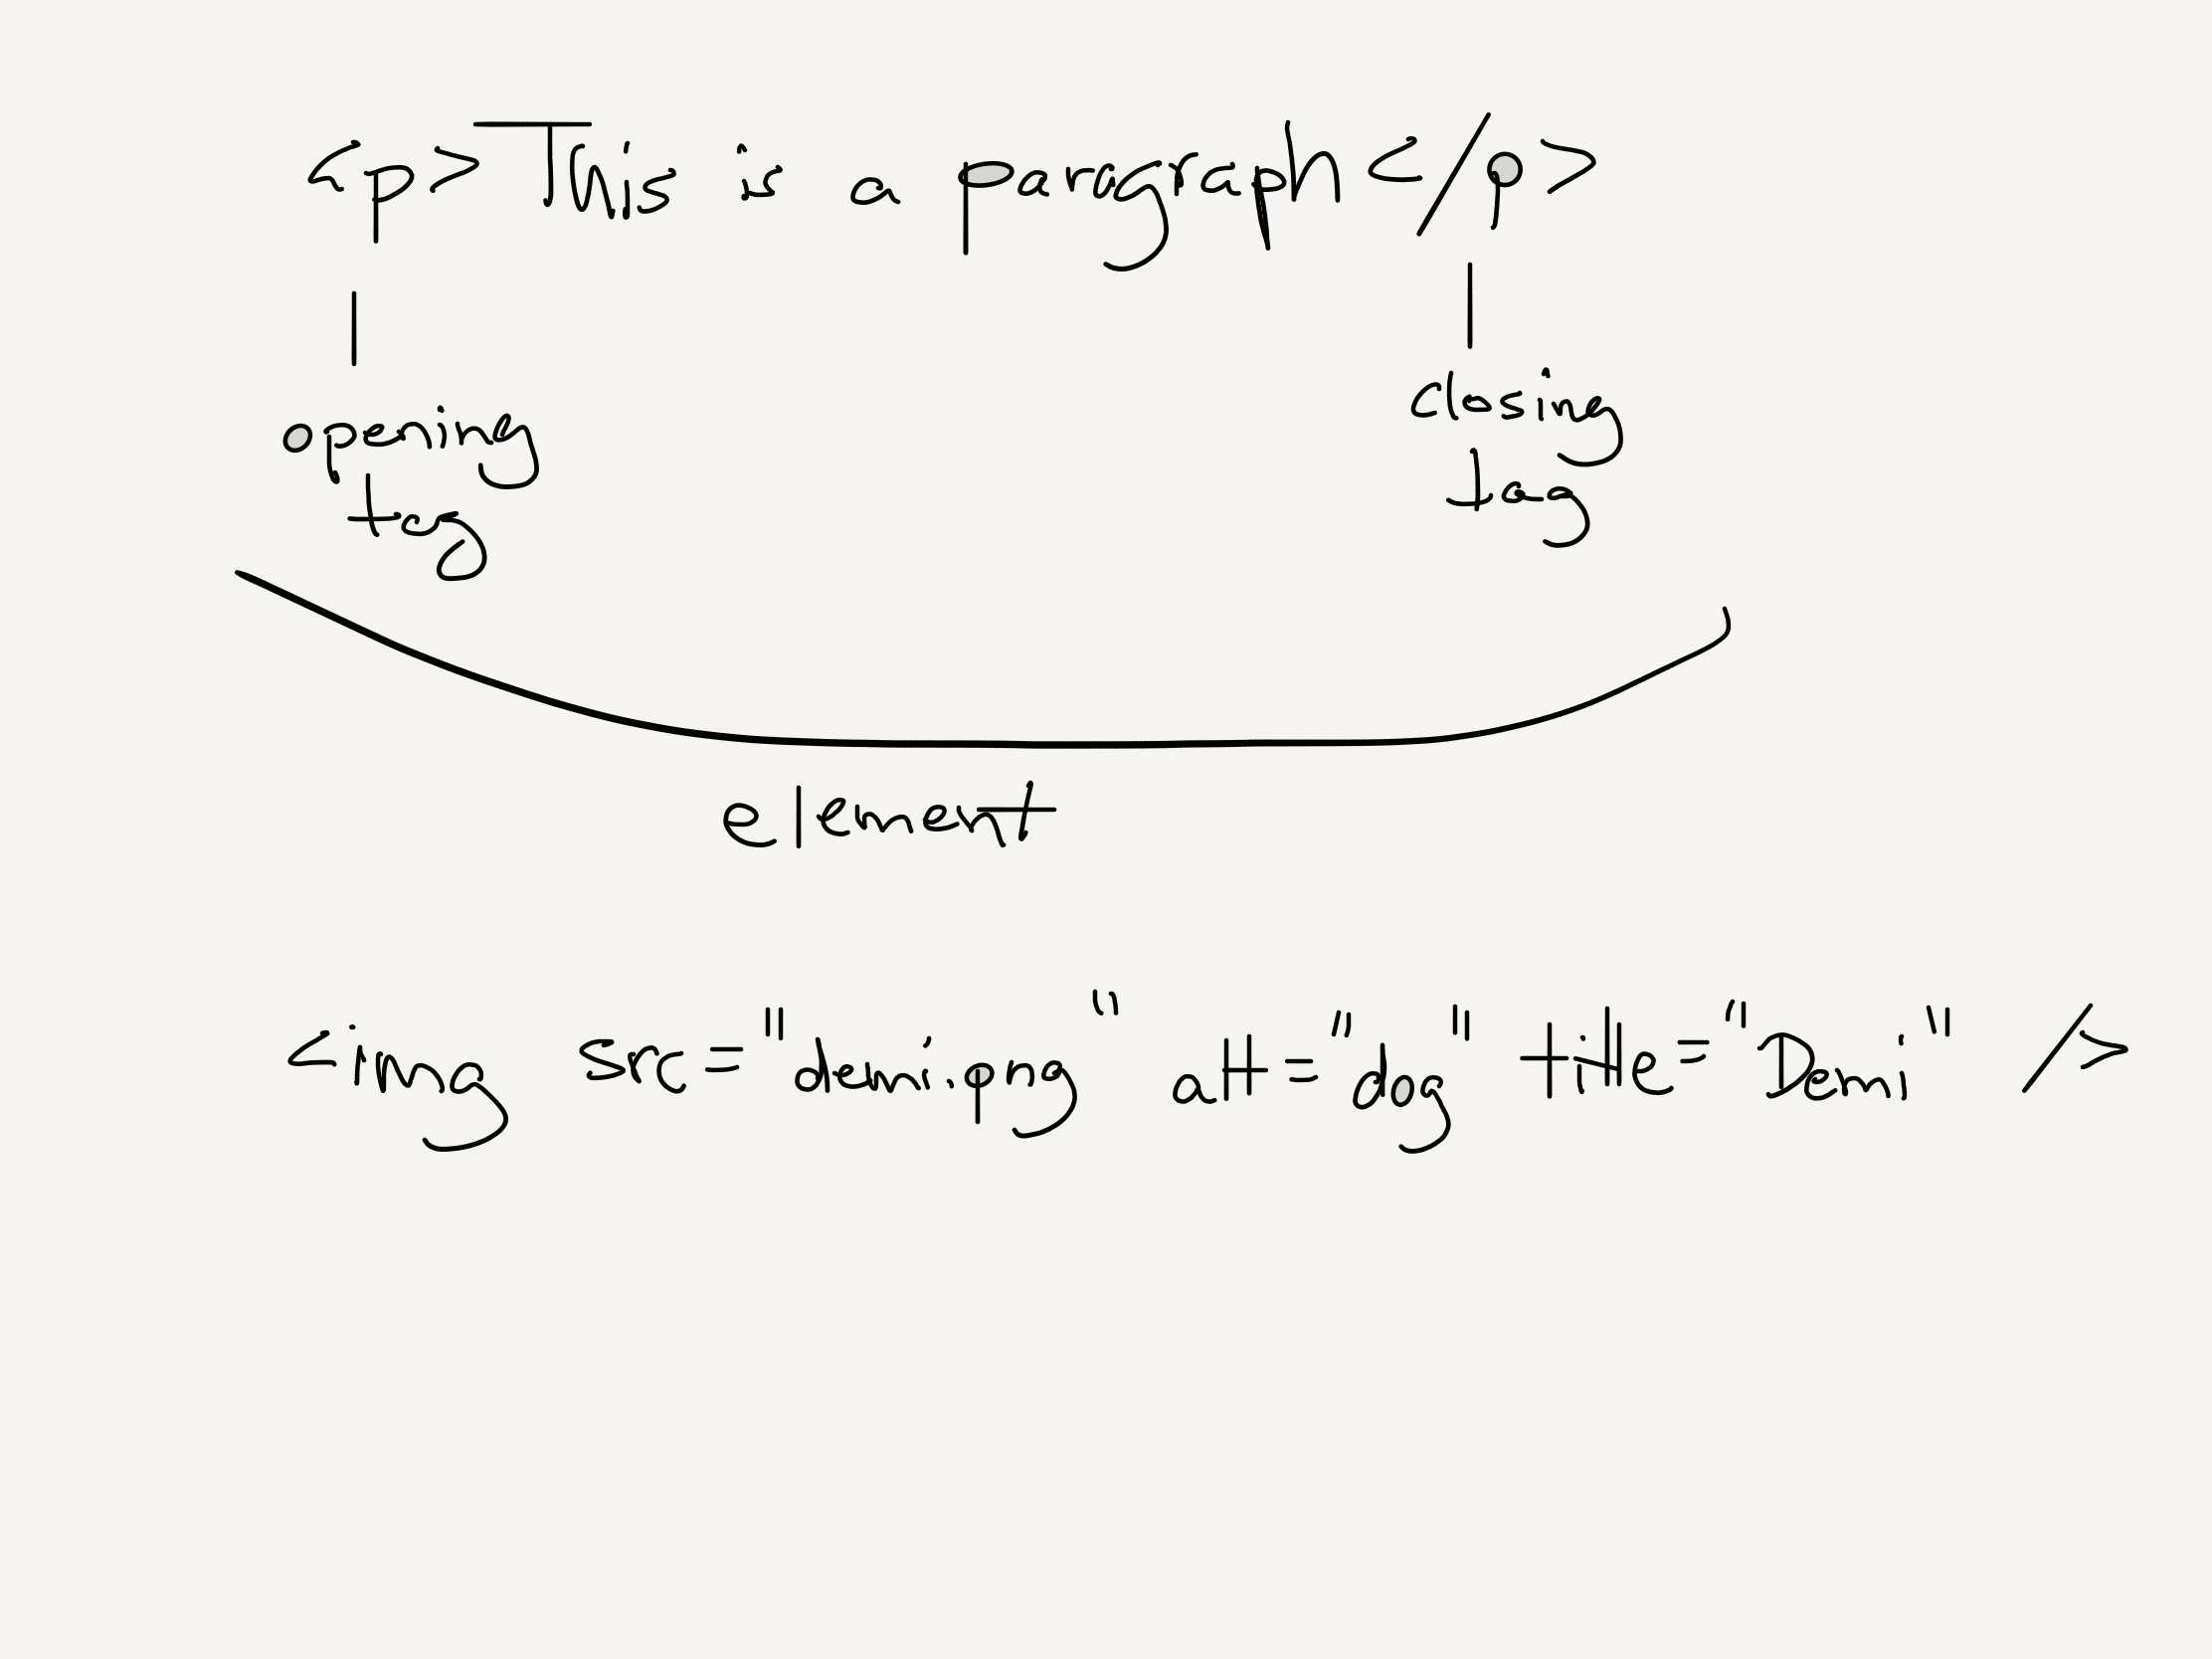 <p>This is a paragraph</p>
opening
tag
closing
tag
element
<img src="demi.png" alt="dog" title="Demi" />